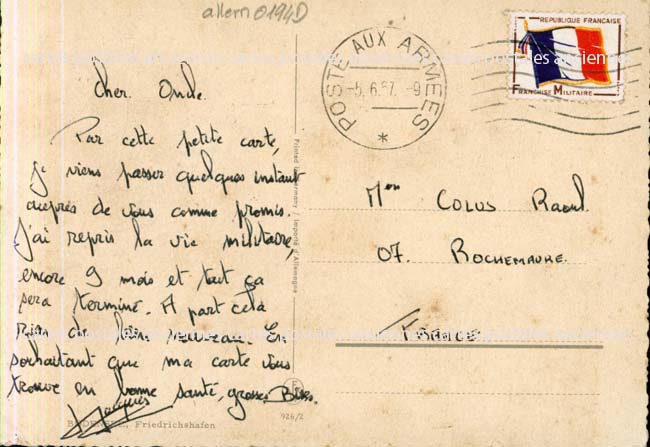 allem 0194D
Cher Oncle.
Par cette petite carte,
je viens passer quelques instant
auprès de vous comme promis.
j'ai repris la vie militaire,
encore 9 mois et tout ça
sera terminé. A part cela
rien de bien nouveau. En
souhaitant que ma carte vous
trouve en bonne santé, grosses Bises.
Jacques
Friedrichshafen
926/2
Printed in Germany / Importé d'Allemagne
POSTE AUX ARMEES
-5.6.67. -9
*
REPUBLIQUE FRANÇAISE
FRANCHISE MILITAIRE
Mr COLUS Raoul
07. ROCHEMAURE
FRANCE